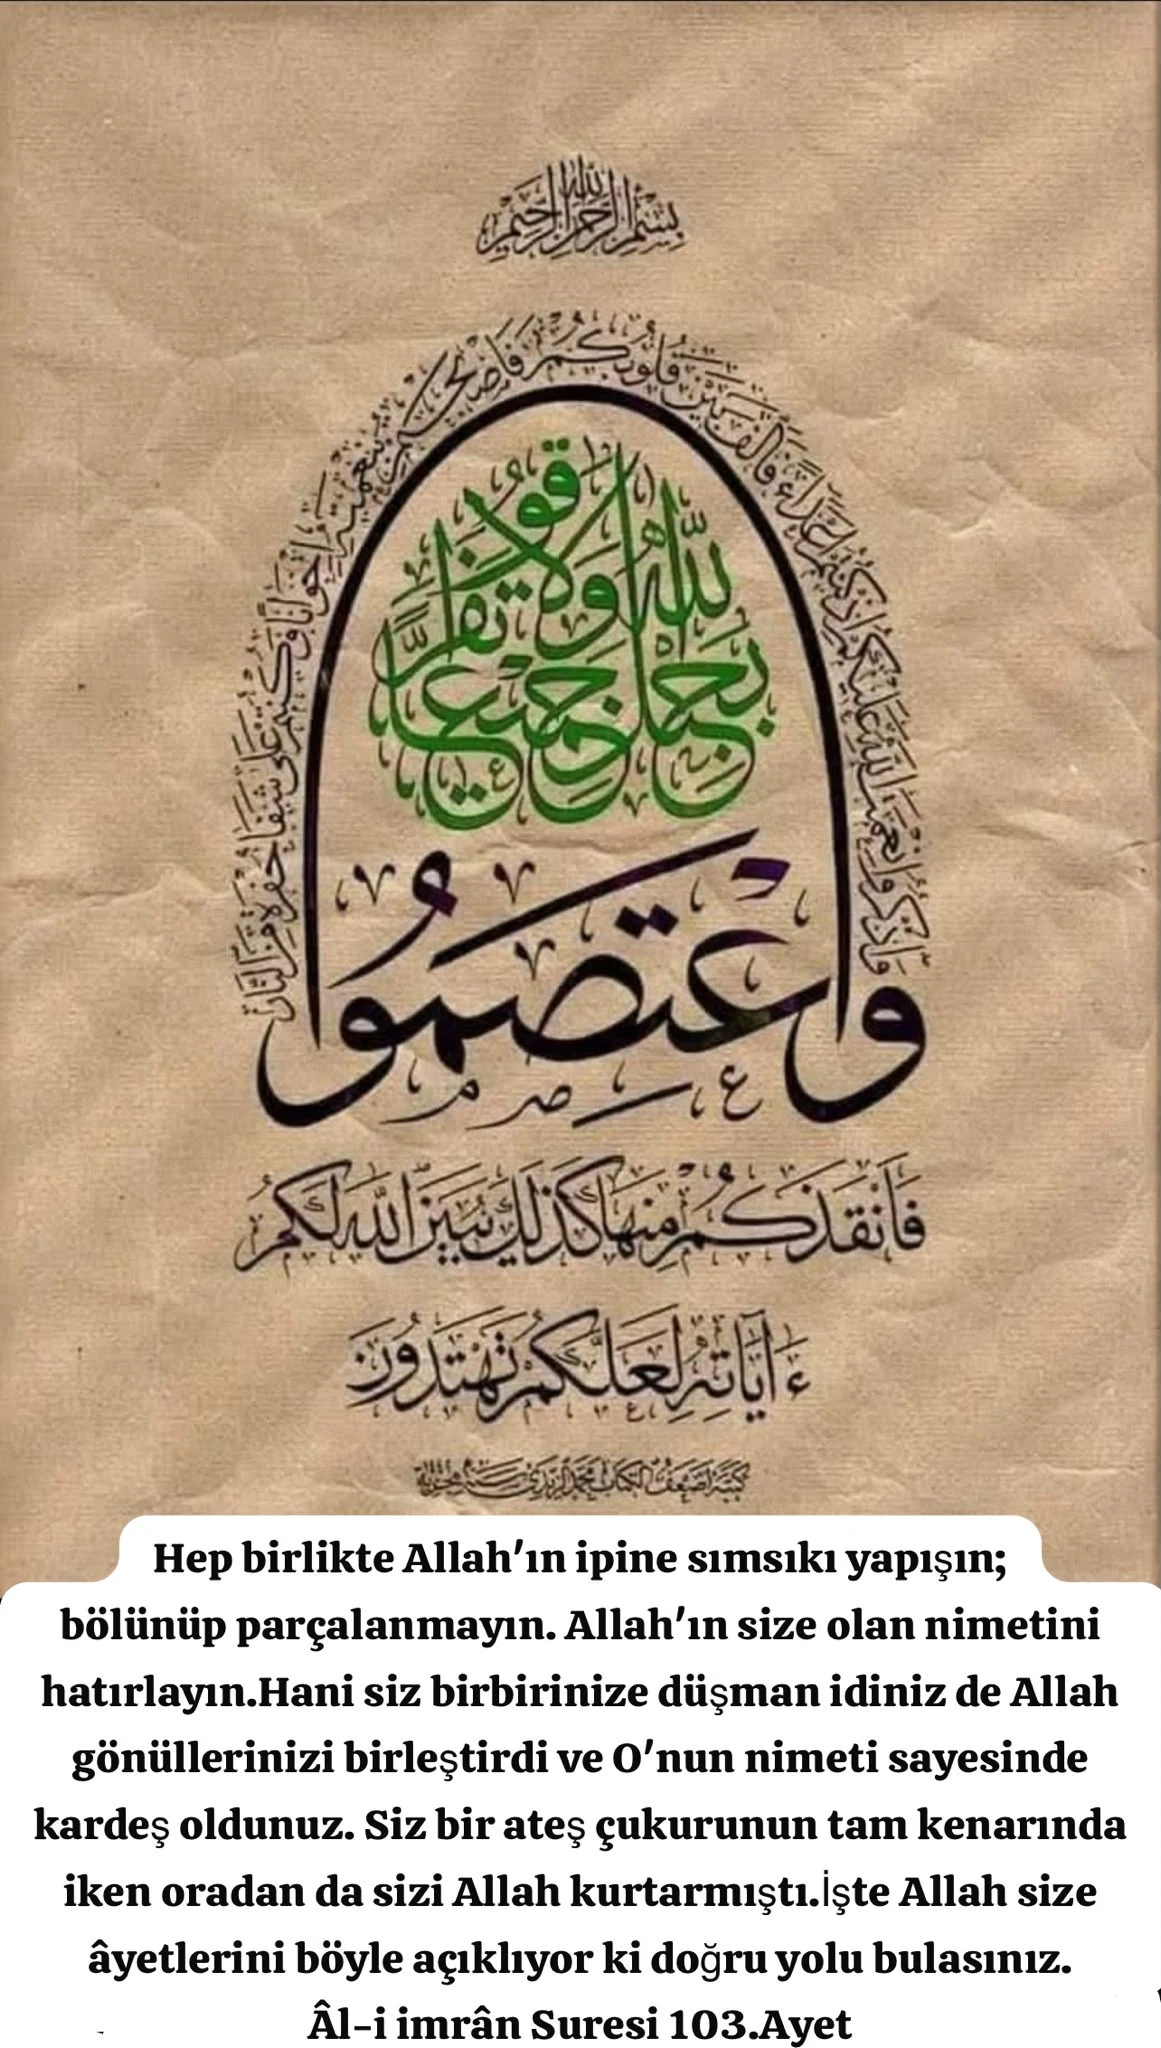 بسم الله الرحمن الرحيم
وَاعْتَصِمُوا
بِحَبْلِ اللَّهِ جَمِيعًا وَلَا تَفَرَّقُوا
وَاذْكُرُوا نِعْمَتَ اللَّهِ عَلَيْكُمْ إِذْ كُنْتُمْ أَعْدَاءً فَأَلَّفَ بَيْنَ قُلُوبِكُمْ فَأَصْبَحْتُمْ بِنِعْمَتِهِ إِخْوَانًا وَكُنْتُمْ عَلَى شَفَا حُفْرَةٍ مِنَ النَّارِ
فَأَنْقَذَكُمْ مِنْهَا كَذَلِكَ يُبَيِّنُ اللَّهُ لَكُمْ
ءَايَاتِهِ لَعَلَّكُمْ تَهْتَدُونَ
Hep birlikte Allah'ın ipine sımsıkı yapışın;
bölünüp parçalanmayın. Allah'ın size olan nimetini
hatırlayın.Hani siz birbirinize düşman idiniz de Allah
gönüllerinizi birleştirdi ve O'nun nimeti sayesinde
kardeş oldunuz. Siz bir ateş çukurunun tam kenarında
iken oradan da sizi Allah kurtarmıştı.İşte Allah size
âyetlerini böyle açıklıyor ki doğru yolu bulasınız.
Âl-i imrân Suresi 103.Ayet